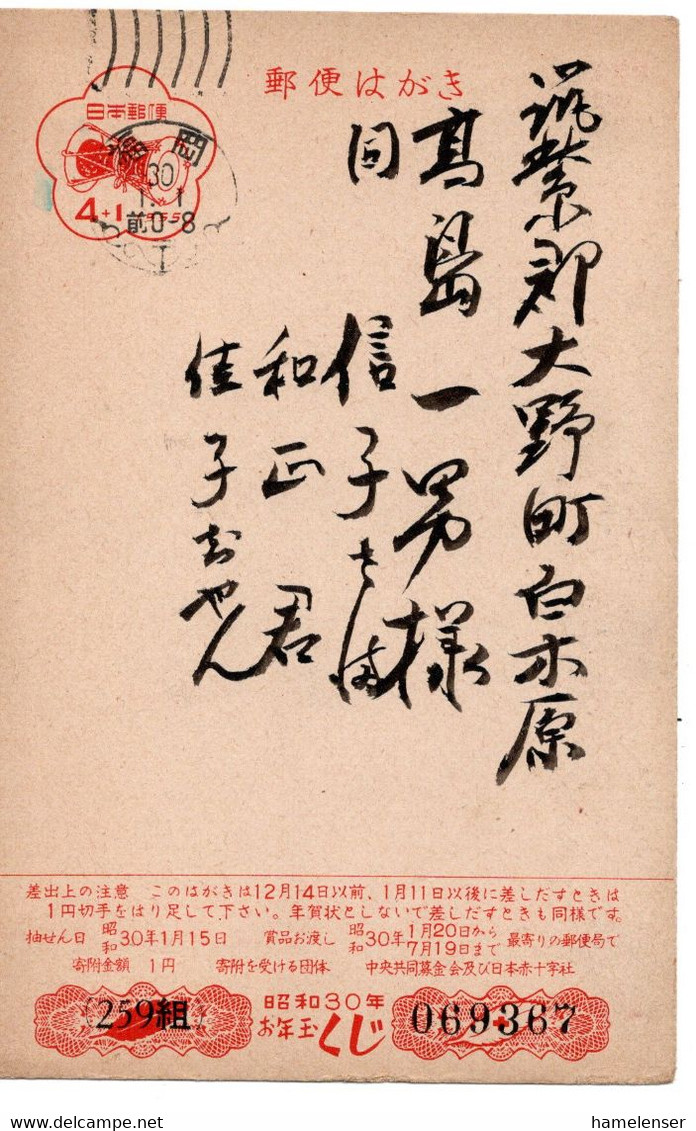 郵便はがき
日本郵便
4+1 1955
福岡
30
1.1
前0-8
筑紫郡大野町白木原
高島一男様
同 信子さま
和正君
佳子ちゃん
差出上の注意 このはがきは12月14日以前、1月11日以後に差しだすときは
1円切手をはり足して下さい。年賀状としないで差しだすときも同様です。
抽せん日 昭和30年1月15日 賞品お渡し 昭和30年1月20日から7月19日まで 最寄りの郵便局で
寄附金額 1円 寄附を受ける団体 中央共同募金会及び日本赤十字社
259組
昭和30年
お年玉くじ
069367
hamelenser